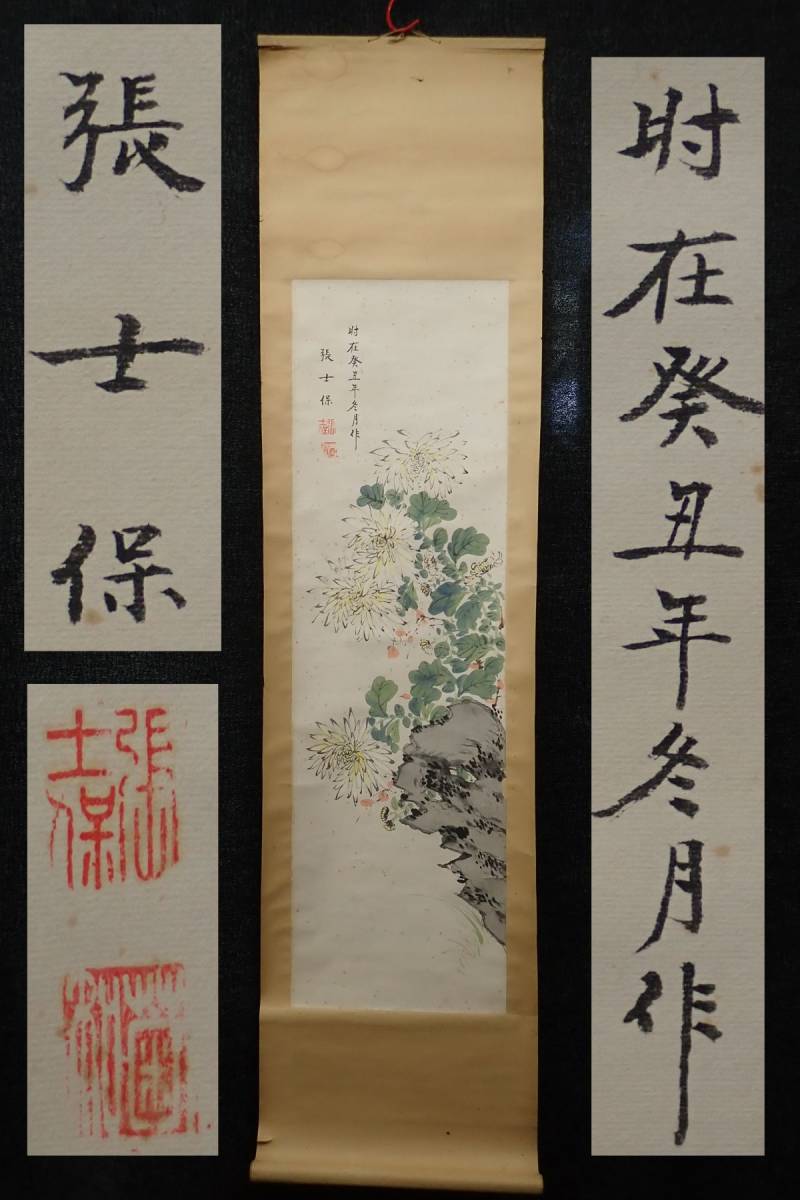 时在癸丑年冬月作
时在癸丑年冬月作
張士保
張士保
張士保